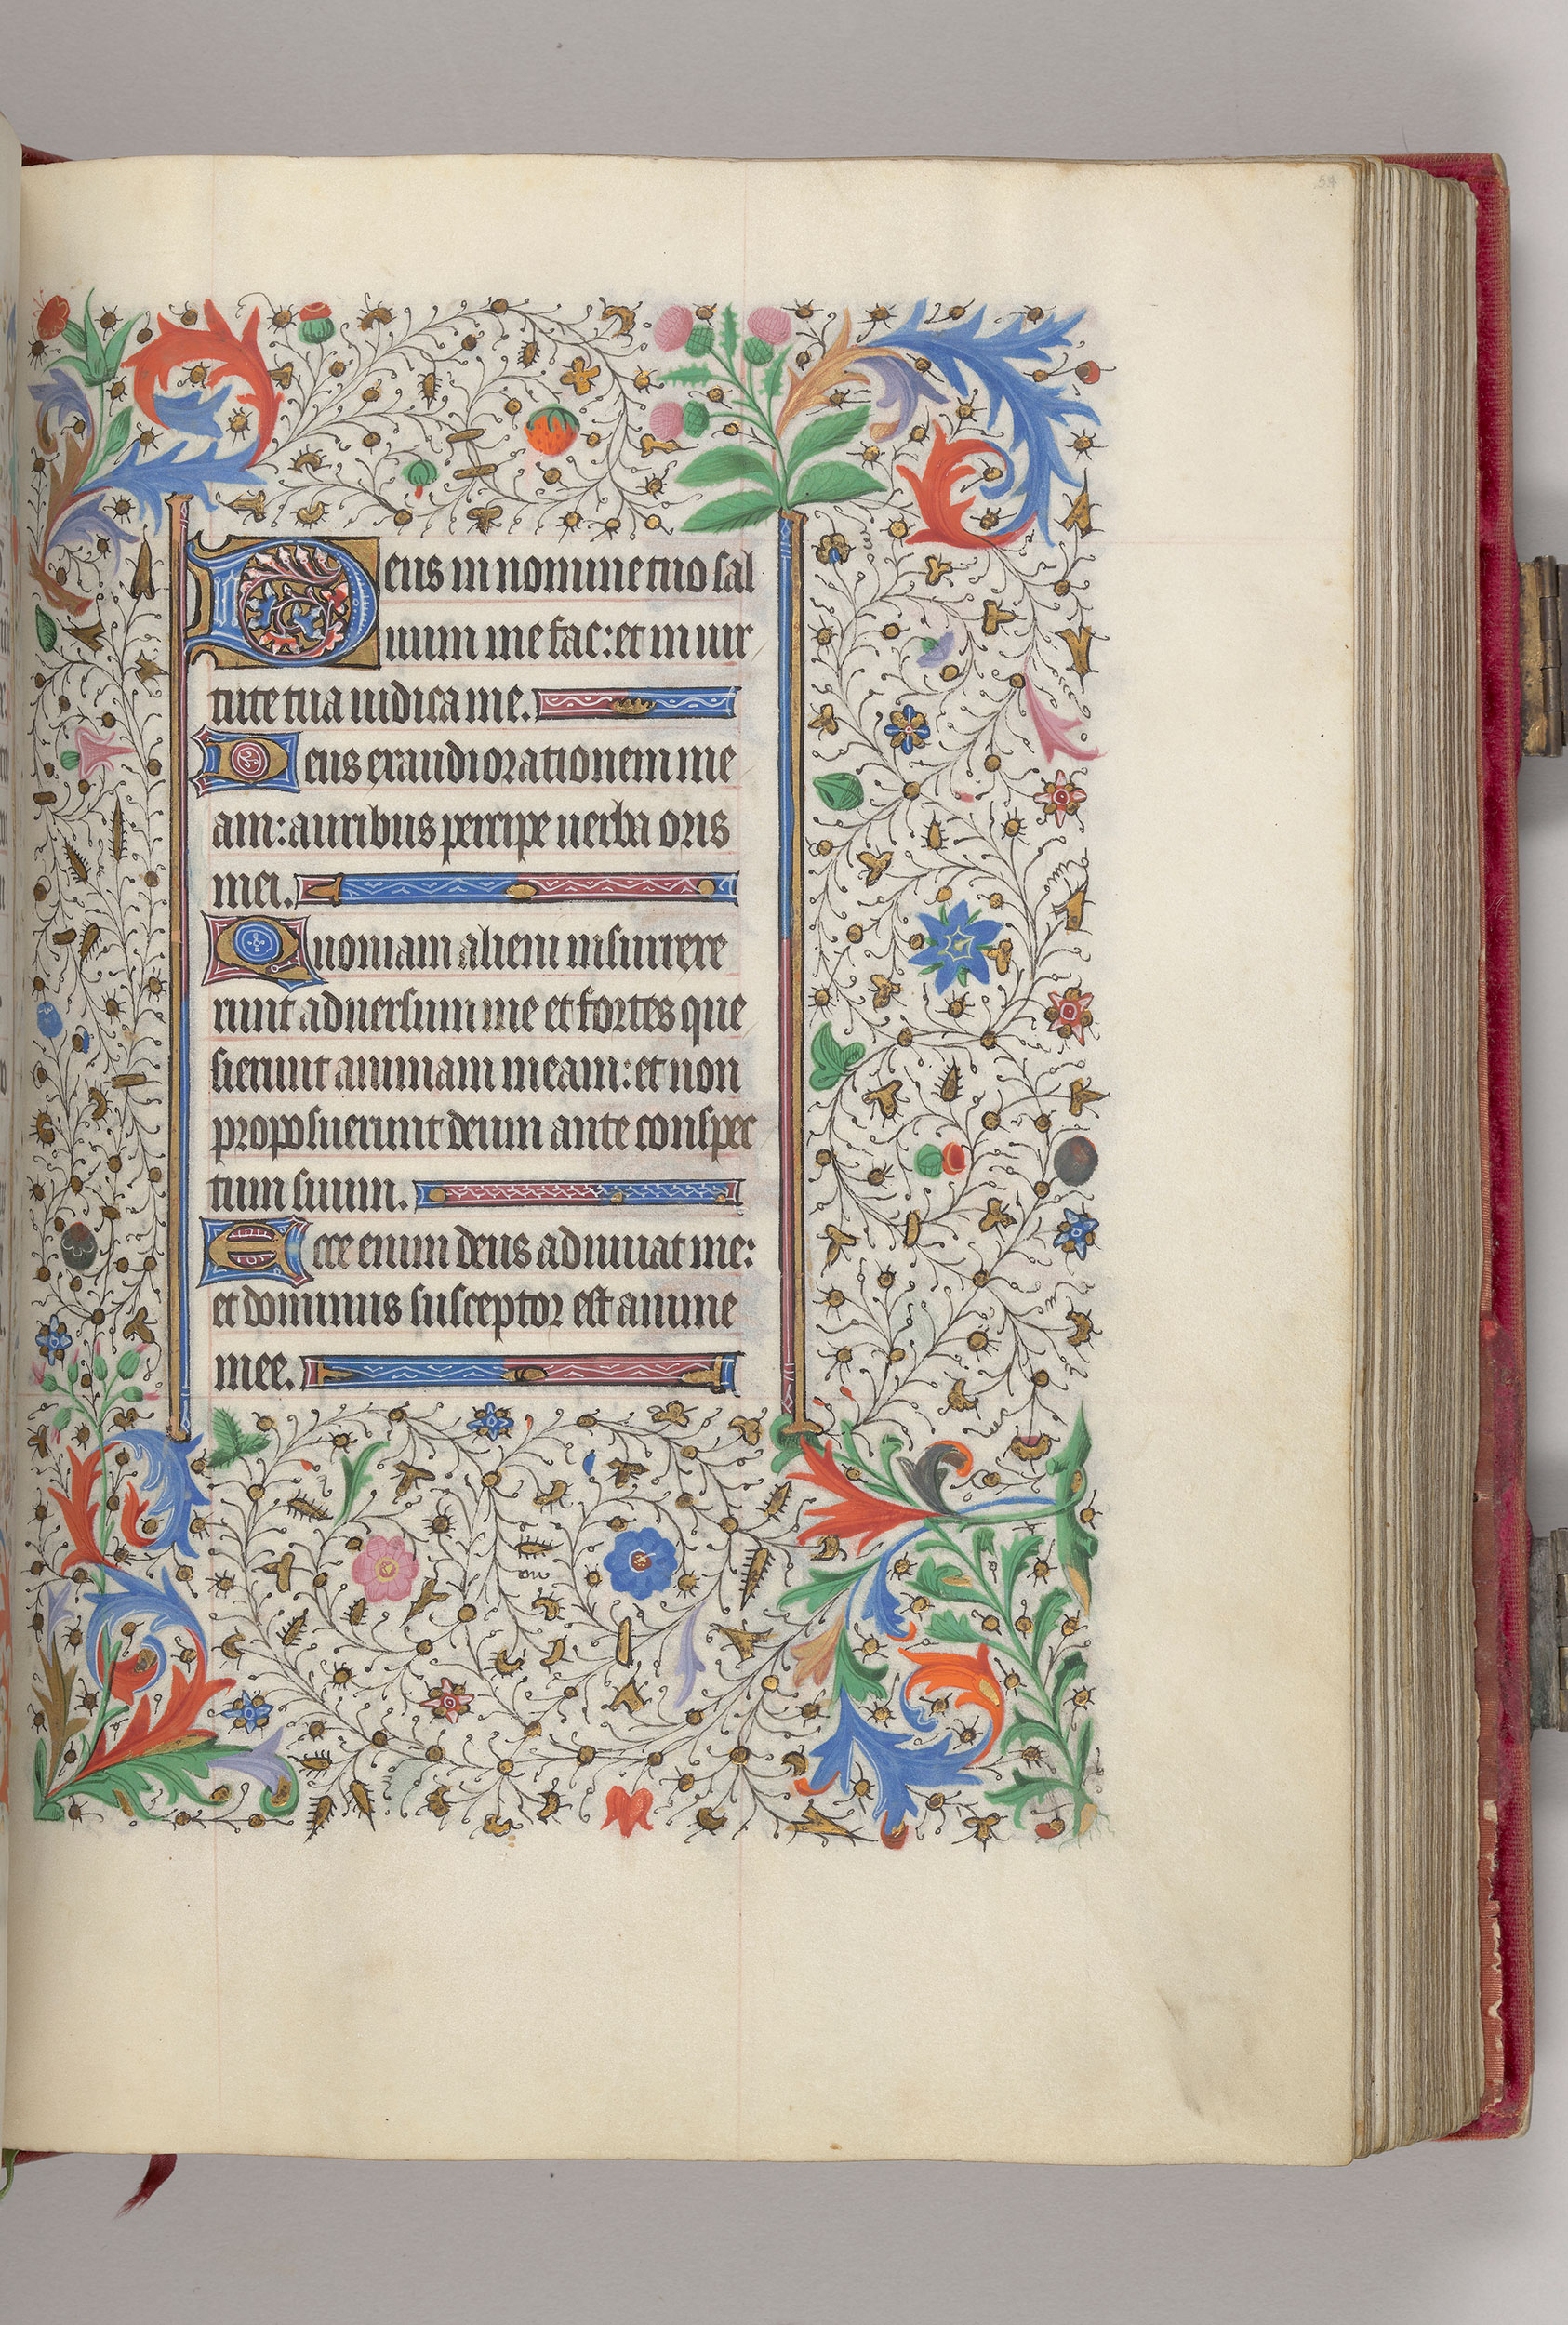 54
Deus in nomine tuo sal
uum me fac: et in uir
tute tua iudica me.
Deus exaudi orationem me
am: auribus percipe uerba oris
mei.
Quoniam alieni insurrexe
runt aduersum me et fortes que
sierunt animam meam: et non
proposuerunt deum ante conspec
tum suum.
Ecce enim deus adiuuat me:
et dominus susceptor est anime
mee.